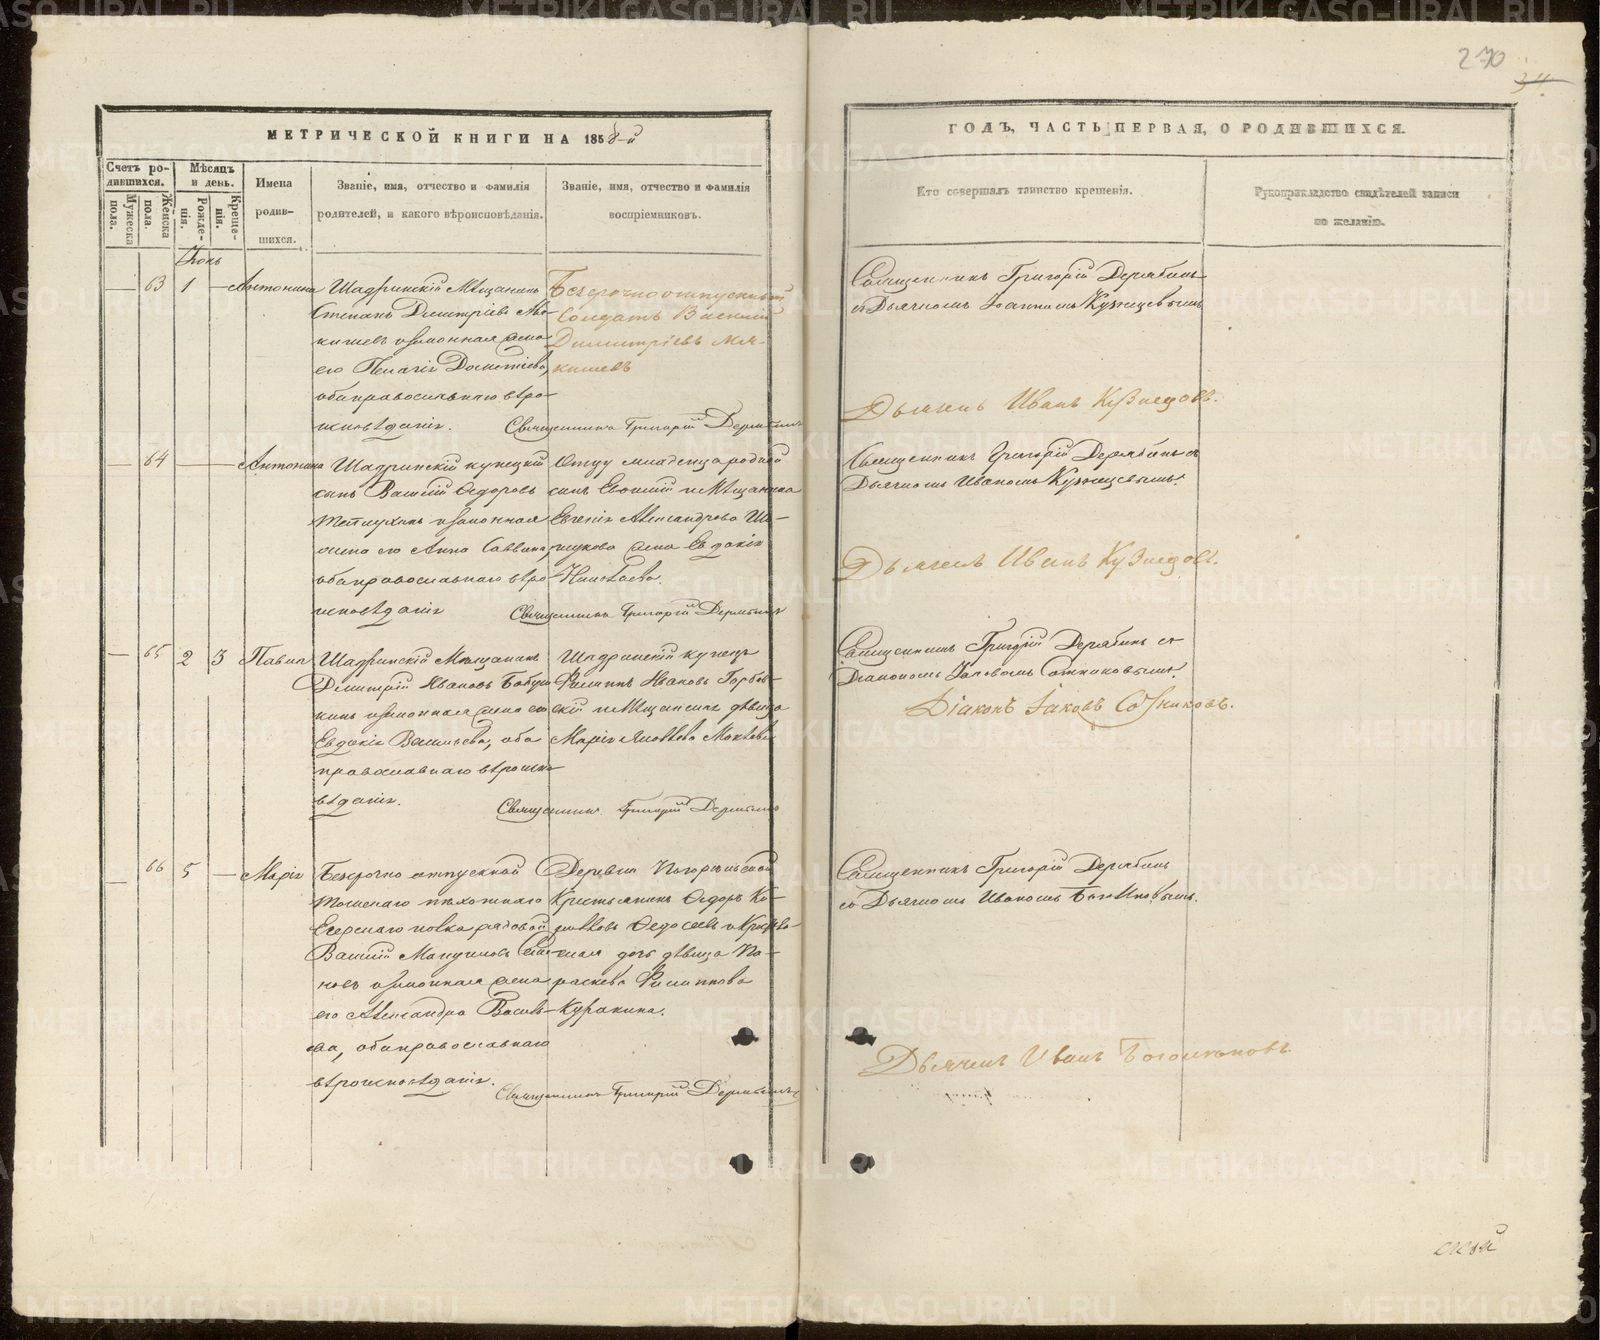 270
34.
МЕТРИЧЕСКОЙ КНИГИ НА 1858-й
ГОДЪ, ЧАСТЬ ПЕРВАЯ, О РОДИВШИХСЯ.
Счетъ родившихся.
Мужеска пола.
Женска пола.
Мѣсяцъ и день.
Рожденія.
Крещенія.
Имена
родив-
шихся.
Званіе, имя, отчество и фамилія
родителей, и какого вѣроисповѣданія.
Званіе, имя, отчество и фамилія
воспріемниковъ.
Кто совершалъ таинство крещенія.
Рукоприкладство свидѣтелей записи
по желанію.
Іюнь
63 1 — Антонина
Шадринскій Мѣщанинъ
Степанъ Димитріевъ Мя-
кишевъ и законная жена
его Пелагія
оба православнаго вѣро-
исповѣданія.
Безсрочно отпускный
Солдатъ Василій
Димитріевъ Мя-
кишевъ
Священникъ Григорій Дерябинъ
Священникъ Григорій Дерябинъ
съ Дьячкомъ Іоанномъ Кузнецовымъ
Дьячекъ Иванъ Кузнецовъ.
64 — — Антонина
Шадринскій купецкій
сынъ Василій Ѳедоровъ
и законная
жена его Анна Саввина,
оба православнаго вѣро-
исповѣданія
Отцу младенца родной
сынъ и Мѣщанка
Евгенія Александрова
жена Евдокія
Священникъ Григорій Дерябинъ
Священникъ Григорій Дерябинъ съ
Дьячкомъ Иваномъ Кузнецовымъ.
Дьячекъ Иванъ Кузнецовъ.
65 2 3 Павла
Шадринскій Мѣщанинъ
Димитрій Ивановъ Бабуш-
кинъ и законная жена его
Евдокія Васильева, оба
православнаго вѣроиспо-
вѣданія.
Шадринскій купецъ
Филиппъ Ивановъ
и Мѣщанская дѣвица
Марія Яковлева
Священникъ Григорій Дерябинъ
Священникъ Григорій Дерябинъ съ
Діакономъ Іаковомъ Сотниковымъ.
Діаконъ Іаковъ Сотниковъ.
66 5 — Марія
Безсрочно отпускной
Томскаго пѣхотнаго
Егерскаго полка рядовой
Василій
и законная жена
его Александра Василь-
ева, оба православнаго
вѣроисповѣданія.
Деревни
Крестьянинъ Ѳедоръ
Ѳедосеевъ и Крестьян-
ская дочь дѣвица Па-
раскева Филиппова
Куракина.
Священникъ Григорій Дерябинъ
Священникъ Григорій Дерябинъ
съ Дьячкомъ Иваномъ
Дьячекъ Иванъ
METRIKI.GASO-URAL.RU